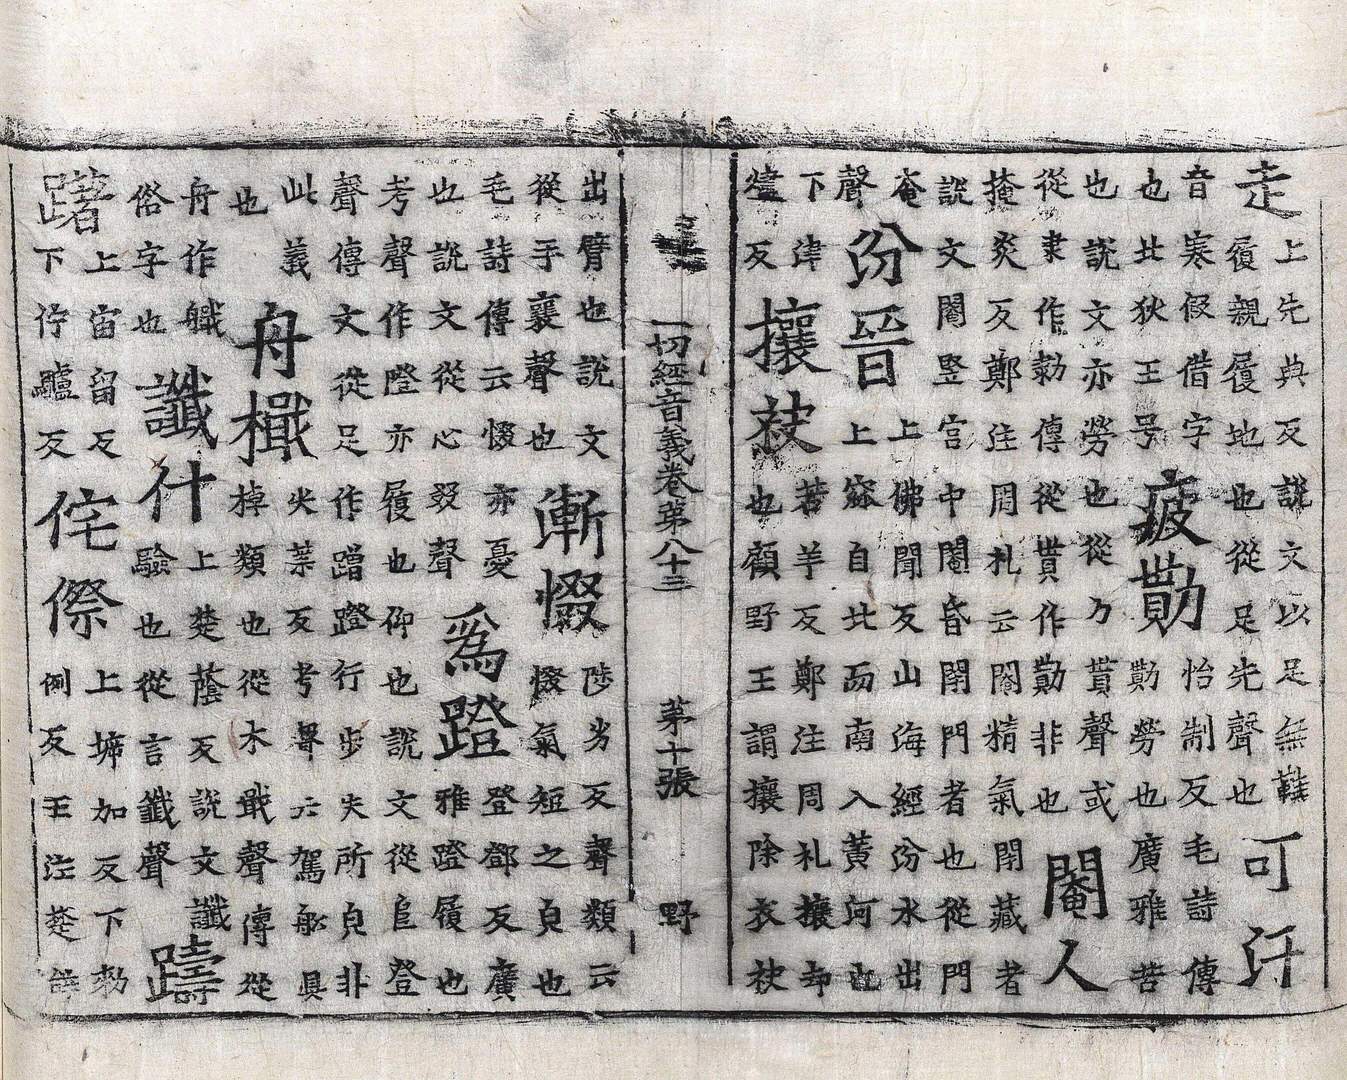 走上先典反說文以足無鞋
履親履地也從足先聲也可汗
音寒假借字
也北狄王号疲勩怡制反毛詩傳
勩勞也廣雅苦
也說文亦勞也從力貰聲或
從隶作勚傳從貰作勩非也閹人
掩炎反鄭注周札云閹精氣閉藏者
說文閹竪宮中閹昏閉門者也從門
奄
聲汾晉上佛聞反山海經汾水出
上窳自北而南入黃河也
下津
進反攘袂若羊反鄭注周札攘却
也顧野王謂攘除衣袂
一切經音義卷第八十三 第十張 野
出臂也說文
從手襄聲也慚惙陟劣反聲類云
惙氣短之皃也
毛詩傳云惙亦憂
也說文從心叕聲爲蹬登鄧反廣
雅蹬履也
考聲作隥亦履也仰也說文從𨸏登
聲傳文從足作蹭蹬行步失所皃非
此義
也舟檝尖葉反考聲云駕船具
棹類也從木戢聲傳從
舟作艥
俗字也讖什上楚蔭反說文讖
驗也從言韱聲躊
躇上宙留反
下佇驢反侘傺上坼加反下勑
例反王注楚辞